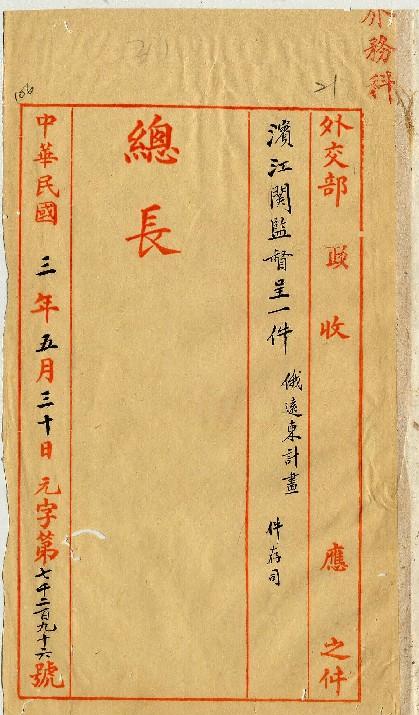 務科
21
外交部 政收 應 之件
濱江関監督呈一件 俄遠東計畫 件存司
總長
中華民國 三年五月三十日元字第七千二百九十六號
106